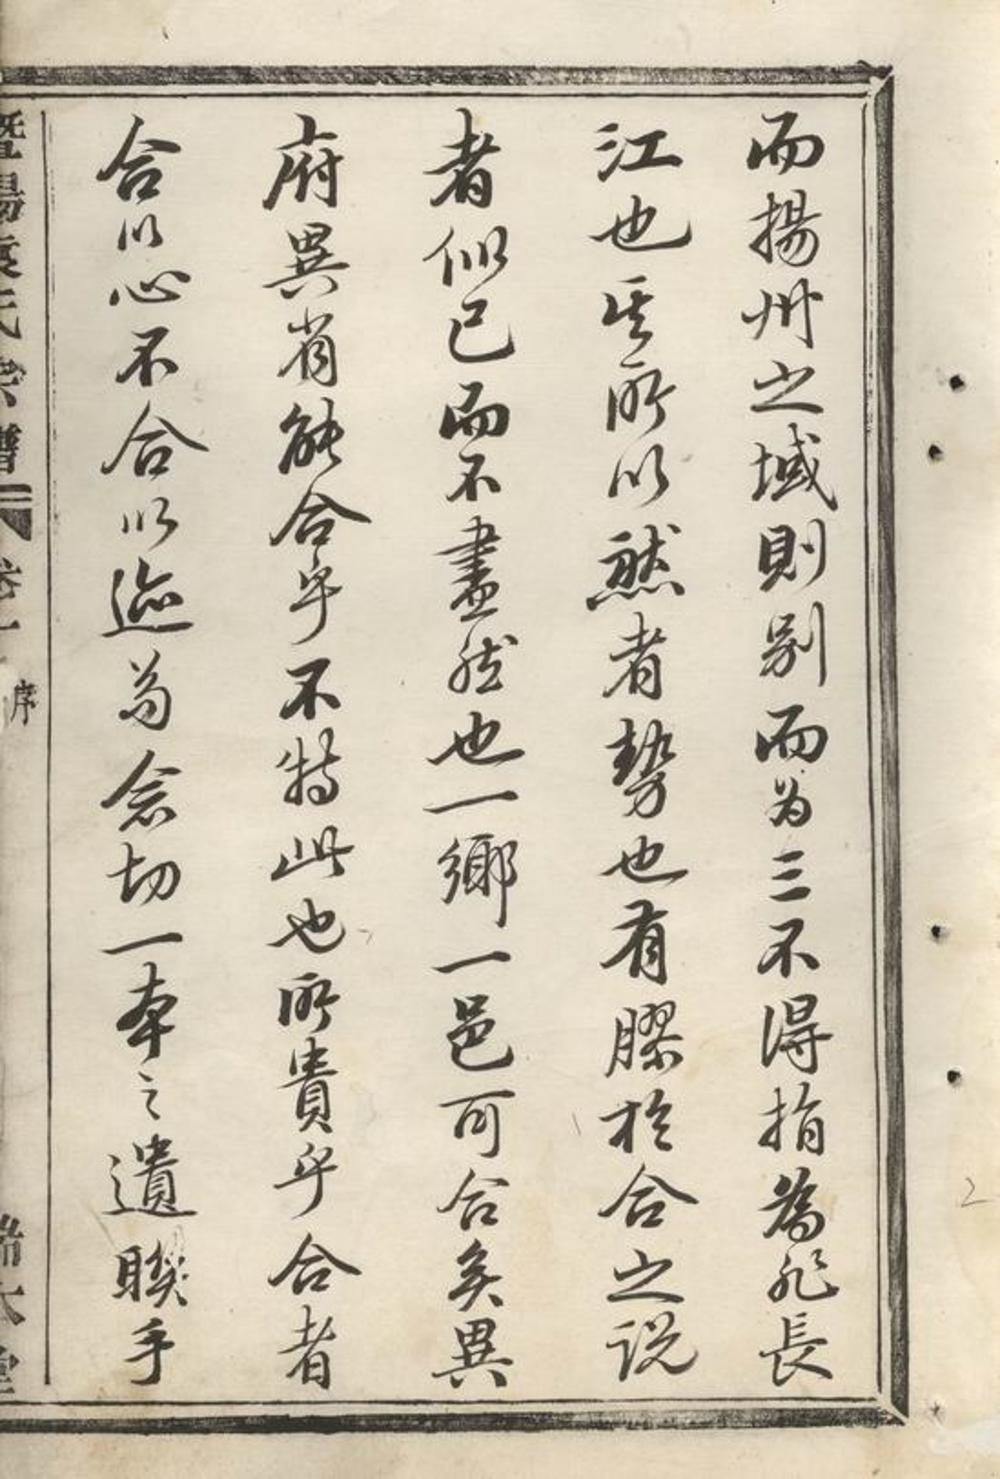 而揚州之域則別而为三不得指為非長
江也其所以然者勢也有膠於合之说
者似已而不盡然也一鄉一邑可合矣異
府異省能合乎不特此也所貴乎合者
合以心不合以迹苟念切一本之遺聯手
暨陽 氏宗譜 卷一 序